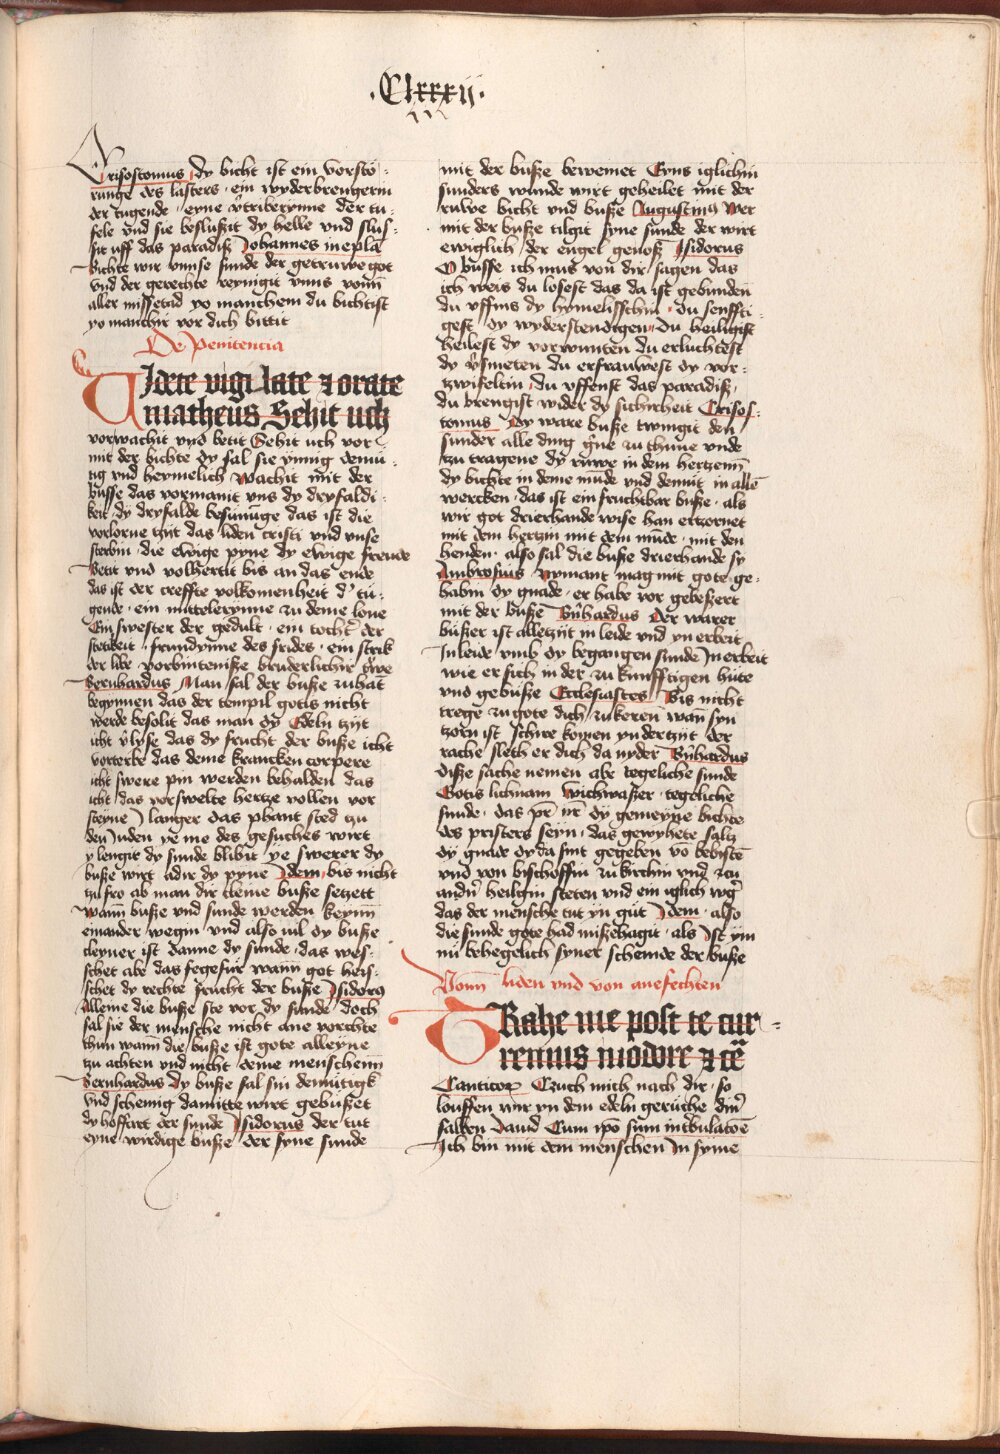 .Clxxxii.
Crisostomus dy bicht ist ein vorsto-
runge des lasters · ein wyderbrengerin
der tugende · eyne v̓triberynne der tu-
fele vnd sie beslußit dy helle vnd slus-
sit uff das paradiß Johannes in epl̄a
Bichte wir vnnse sunde der getruwe got
vnd der gerechte reynigit vnns vonn
aller missetad yo manchem du bichtist
yo manchir vor dich bittit
De penitencia
Videte vigilate ⁊ orate
matheus Sehit uch
vorwachit vnd betit Sehit uch vor
mit der bichte dy sal sie ynnig demu-
tig vnd heymelich Wachit mit der
busse das vormanit vns dy dryfaldi-
keit dy dryfalde besinnu̅ge das ist die
vorlorne tzyt das liden cristi vnd vnse
sterbin · die ewige pyne dy ewige freude
Betit vnd volhertit bis an das ende
das ist der treffte volkomenheit d̓ tu-
gende · ein mittelerynne zu deme lone
Ein swester der gedult · ein tocht̓ der
stetikeit · frundynne des frides · ein strik
der libe vorbinteniße bruderlichir t̓we
Bernhardus Man sal der buße zuhāt
begynnen das der tempil gotis nicht
werde besolit das man dy Edeln tzyt
icht v̓lyse das dy frucht der buße icht
vorterbe das deme krancken corpere
icht swere pin werden behalden das
icht das vorswelte hertze vollen vor
steyne Je langer das phant sted tzu
den Juden ye me des gesuches wirt
y lengir dy sunde blibit ye swerer dy
buße wirt adir dy pyne Idem bis nicht
tzu fro ab man dir cleine buße setzett
wann buße vnd sunde werden keynn
einander wegin vnd also uil dy buße
cleyner ist danne dy sunde · das wes-
schet abe das fegefur wann got heis-
schet dy rechte frucht der buße Isidorꝰ
Alleine die buße ste vor dy sunde doch
sal sie der mensche nicht ane vorchte
thun wann die buße ist gote alleyne
zu achten vnd nicht deme menschenn
Bernhardus Dy buße sal sin demutigk
vnd schemig damitte wirt gebußet
dy hoffart der sunde Isidorus der tut
eyne wirdige buße der syne sunde
mit der buße beweinet Eyns iglichin
sunders wunde wirt geheilet mit der
ruwe bicht vnd buße Augustinꝰ Wer
mit der buße tilgit syne sunde der wirt
ewiglich der engel genoß Isidorus
O busse ich mus von dir sagen das
ich weis du losest das da ist gebunden
du uffins dy hymelisschin · du senffti-
gest dy wyderstendigen du heiligist
heilest dy vorwunten du erluchtest
dy v̓smeten du erfrauwest dy vor-
tzwifeltin du uffenst das paradiß
du brengist wider dy sichirheit Crisos-
tomus Dy ware buße twingit den
sunder alle ding g̓ne zu thune vnde
tzu tragene dy ruwe in dem hertzenn
dy bichte in deme mu̅de vnd demut in allē
wercken · das ist ein fruchtbar buße · als
wir got drierhande wise han ertzornet
mit dem hertzin mit dem mu̅de · mit den
henden · also sal die buße drierhande sy
Ambrosius Nymant mag mit gote ge-
habin dy gnade · er habe vor gebeßert
mit der buße Bn̓hardus Der warer
bußer ist alletzyt in leide vnd yn erbeit
In leide vmb dy begangen sunde In erbeit
wie er sich in der zu kunfftigen hute
vnd gebuße Ecclesiastes Bis nicht
trege zu gote dich zukeren wan̄ syn
tzorn ist schire komen yn der tzyt der
rache sleth er dich da nyder Bn̓hardus
Diße sache nemen abe tegeliche sunde
Gotis lichnam Wichwaßer · tegeliche
sunde · das pr̄ nr̄ dy gemeyne bichte
des pristers seyn · das gewyhete saltz
dy gnade dy da sint gegeben vō bebistē
vnd von bischoffin zu kirchin vnd zcu
andn̓ heilgin steten vnd ein iglich w̓g
das der mensche tut yn gut Idem · also
die sunde gote had mißehagit · als ist ym
nu behegelich syner scheinde der buße
Vonn liden vnd von anefechten
TRahe me post te cur-
remus in odore ⁊ cē
Canticoꝝ Czuch mich nach dir · so
louffen wir yn dem edeln geruche din̓
salben Dauid Cum ipō sum in t̓bulatōe
Ich bin mit dem menschen In syme